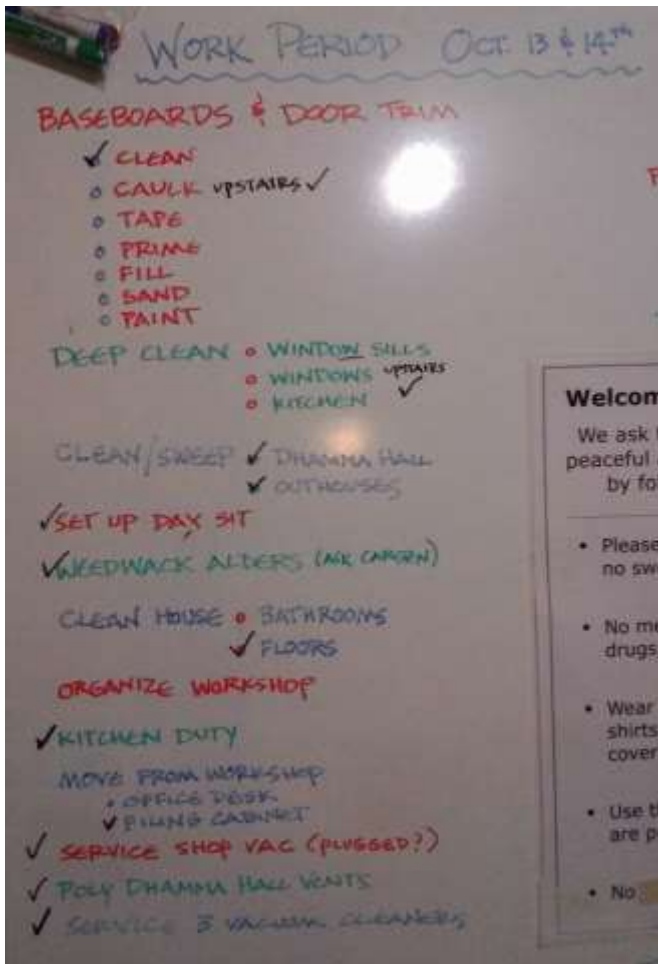 WORK PERIOD OCT. 13 & 14TH
BASEBOARDS & DOOR TRIM
✓ CLEAN
◦ CAULK UPSTAIRS ✓
◦ TAPE
◦ PRIME
◦ FILL
◦ SAND
◦ PAINT
DEEP CLEAN ◦ WINDOW SILLS
◦ WINDOWS UPSTAIRS ✓
◦ KITCHEN
CLEAN/SWEEP ✓ DHAMMA HALL
✓ OUTHOUSES
✓ SET UP DAY SIT
✓ WEEDWACK ALDERS (ASK
CLEAN HOUSE • BATHROOMS
✓ FLOORS
ORGANIZE WORKSHOP
✓ KITCHEN DUTY
MOVE FROM WORKSHOP
• OFFICE DESK
✓ FILING CABINET
✓ SERVICE SHOP VAC (PLUGGED?)
✓ POLY DHAMMA HALL VENTS
✓ SERVICE 3 VACUUM CLEANERS
Welcom
We ask
peaceful
by fo
• Please
no sw
• No me
drugs
• Wear
shirts
cover
• Use t
are p
• No